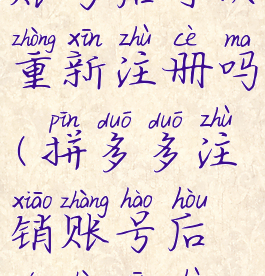 zhòng xīn zhù cè ma
重新注册吗
pīn duō duō zhù
(拼多多注
xiāo zhàng hào hòu
销账号后